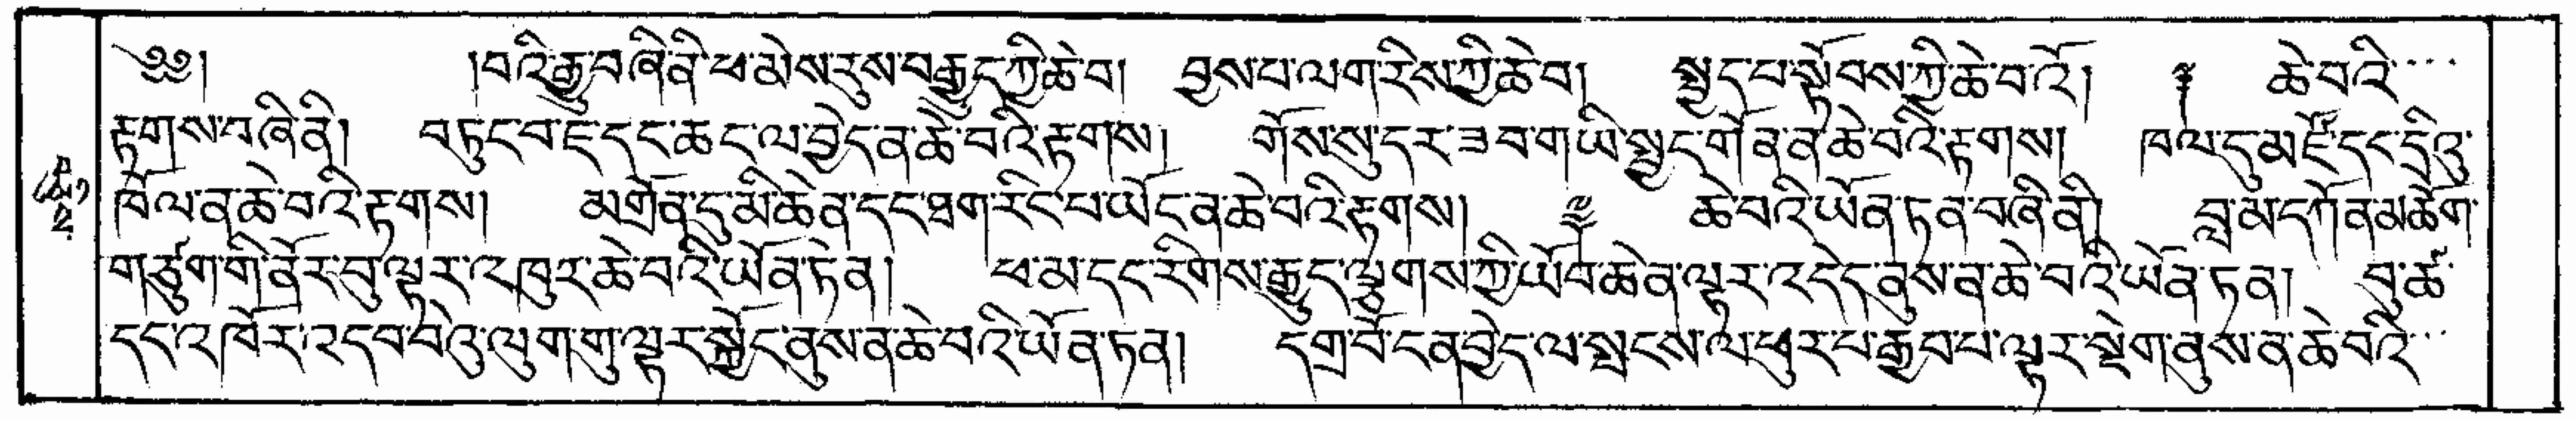 ༄༅། །བའི་རྒྱུ་བཞི་ནི་ཕ་མེས་རུས་བརྒྱུད་ཀྱི་ཆེ་བ། བྱས་པ་ལག་རིས་ཀྱི་ཆེ་བ། སྤྱད་པ་སྟོབས་ཀྱི་ཆེ་བ་འོ། ༈ ཆེ་བའི་
རྟགས་བཞི་ནི། བཏུང་བ་ཇ་དང་ཆང་ལ་བྱེད་ན་ཆེ་བའི་རྟགས། གོས་སུ་དར་ཟབ་ག་ཡི་སྤྱང་གོན་ན་ཆེ་བའི་རྟགས། ཁལ་དུ་མཛོ་དང་དྲིའུ་
ཁོལ་ན་ཆེ་བའི་རྟགས། མགྲོན་དུ་མི་ཆེན་དང་ཐག་རིང་པ་ཡོང་ན་ཆེ་བའི་རྟགས། ༈ ཆེ་བའི་ཡོན་ཏན་བཞི་ནི། བླ་མ་དཀོན་མཆོག་
གཙུག་གི་ནོར་བུ་ལྟར་འཁུར་ཆེ་བའི་ཡོན་ཏེན། ཕ་མ་དང་རིགས་རྒྱུད་ལྕགས་ཀྱི་ཡོབ་ཆེན་ལྟར་འདེད་ནུས་ན་ཆེ་བའི་ཡོན་ཏན། བུ་ཚ་
དང་འཁོར་འདབ་བེའུ་ལུག་གུ་ལྟར་སྐྱོང་ནུས་ན་ཆེ་བའི་ཡོན་ཏན། དགྲ་བོ་ངན་བྱེད་ལ་སྤངས་ལ་ཕུར་པ་རྒྱབ་པ་ལྟར་སྡེག་ནུས་ན་ཆེ་བའི་